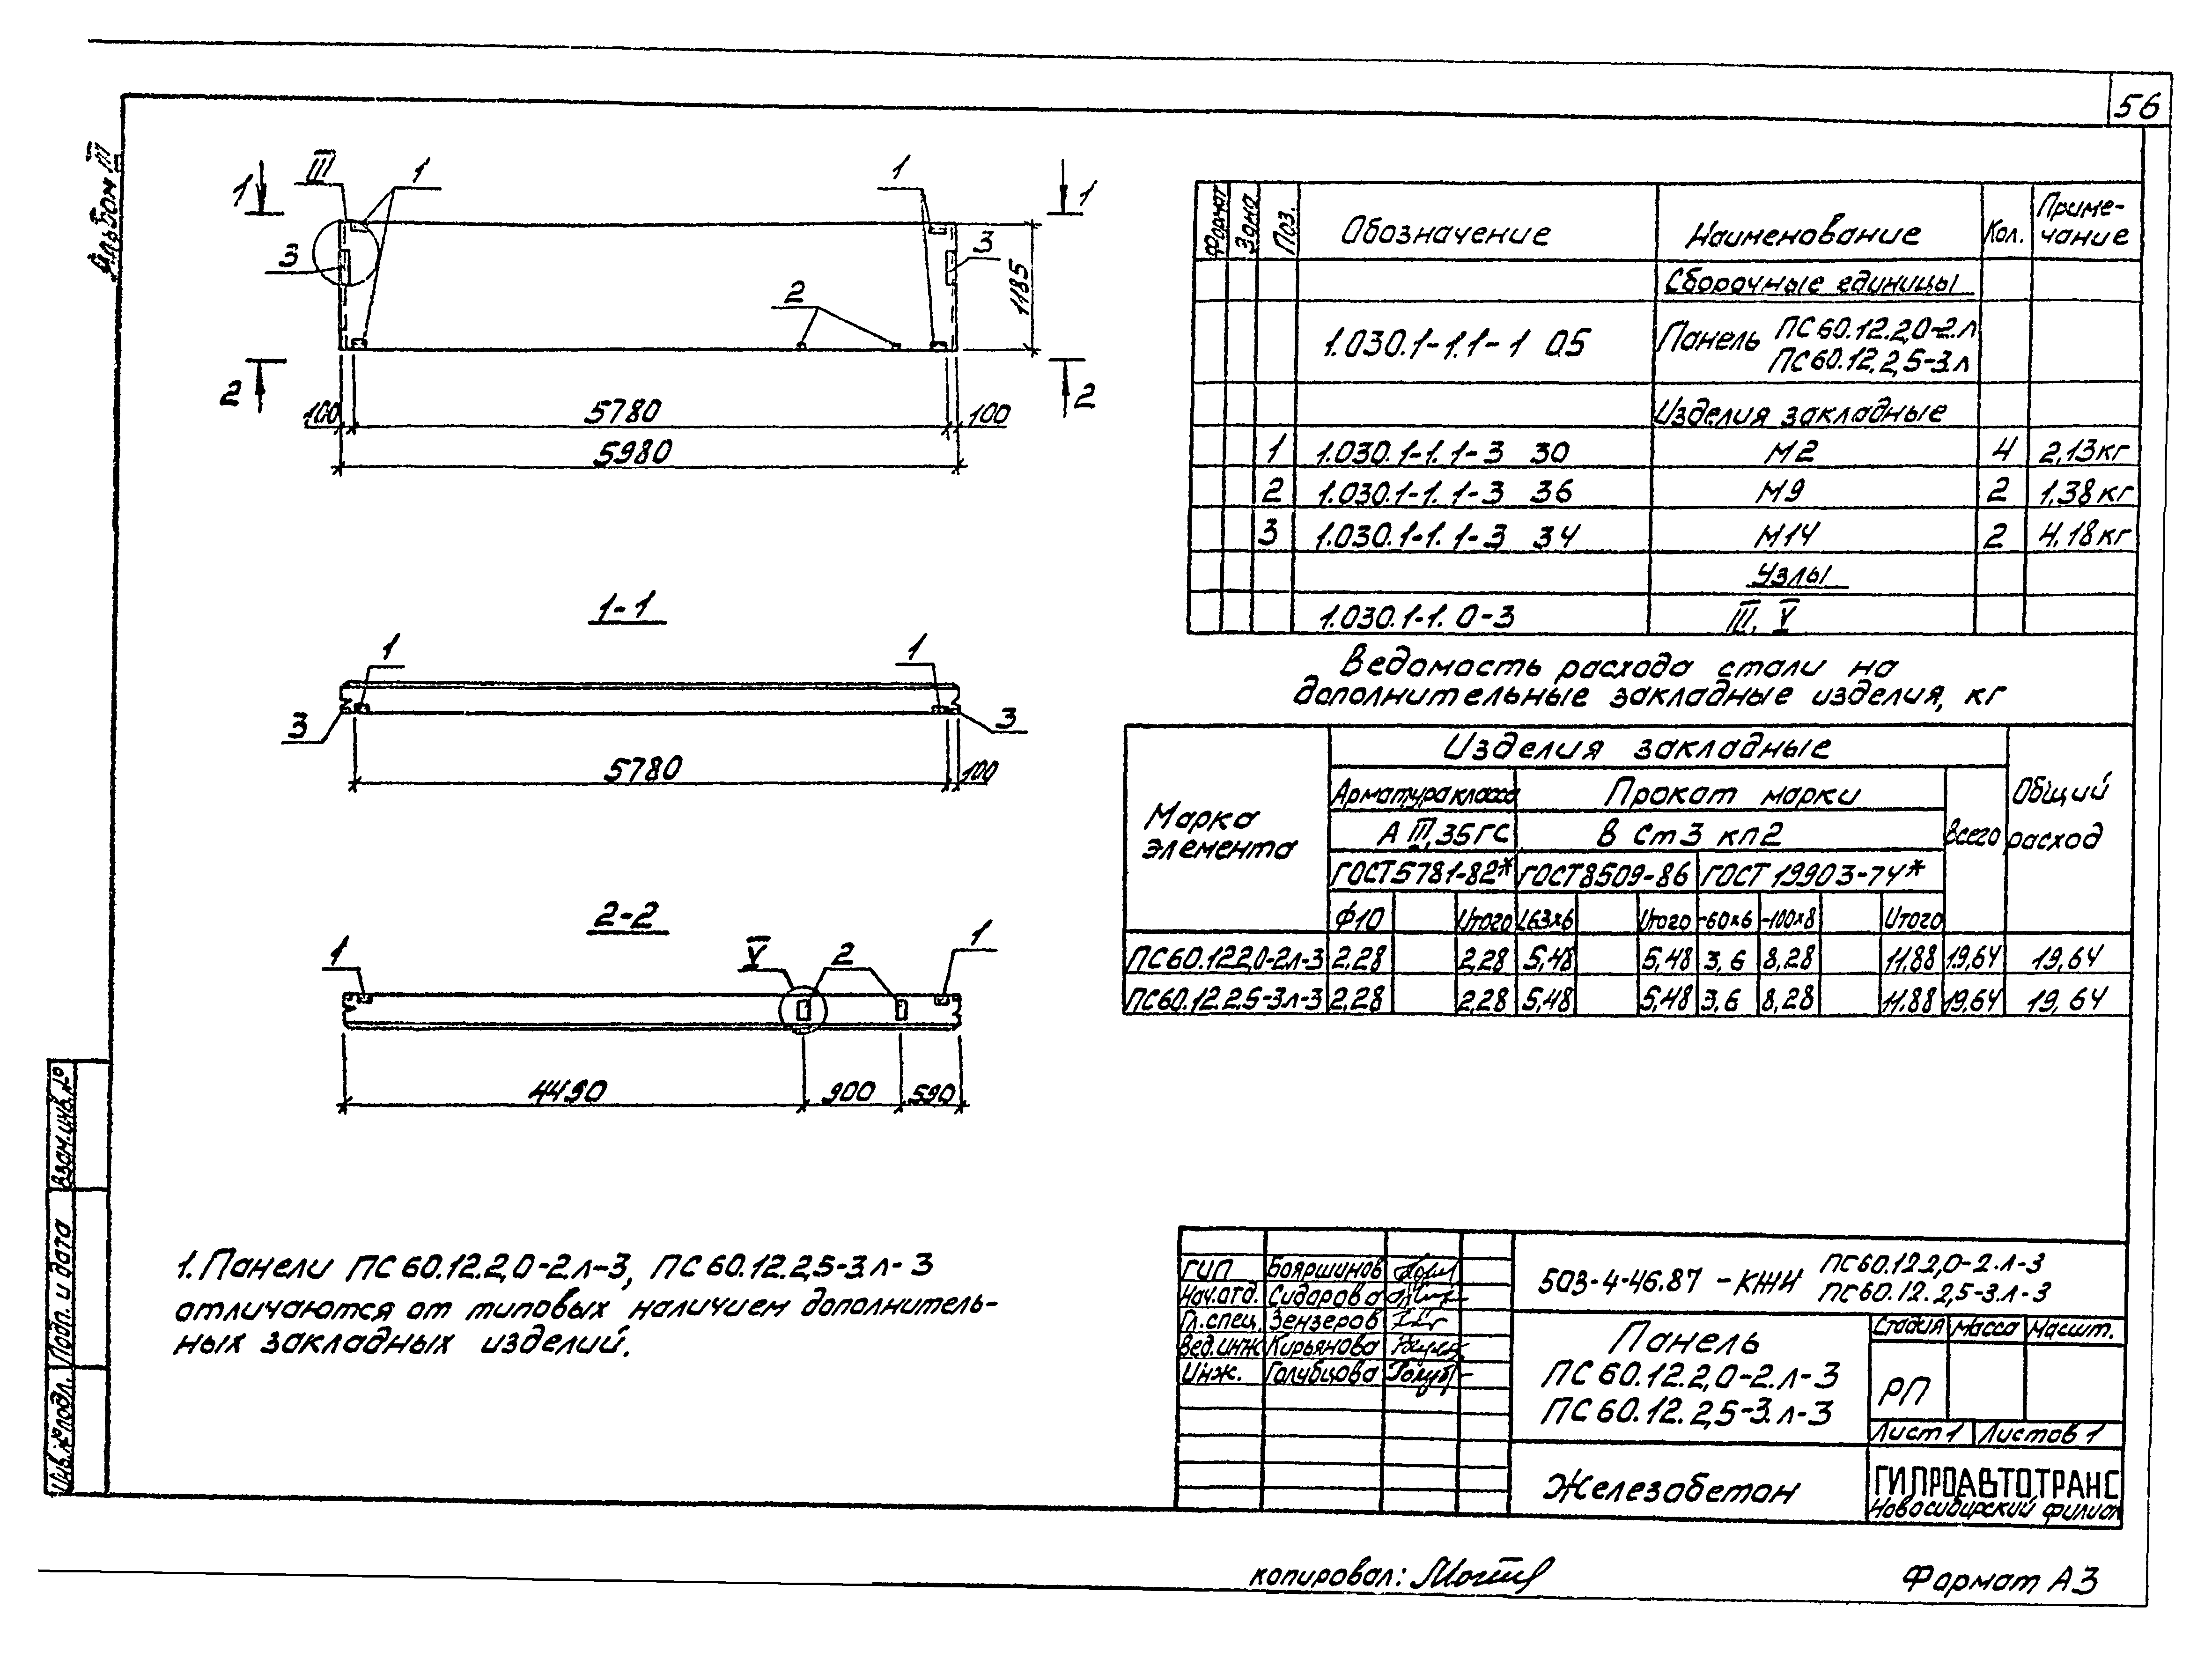 56
Альбом III
III 1 1
1 1
3 3
2
1185
2 2
100 5780 100
5980
1-1
1 1
3 3
5780 100
2-2
1 V 2 1
4490 900 590
1. Панели ПС 60.12.2,0-2.л-3, ПС 60.12.2,5-3.л-3
отличаются от типовых наличием дополнитель-
ных закладных изделий.
Формат Зона Поз. Обозначение Наименование Кол. Приме-
чание
Сборочные единицы
1.030.1-1.1-1 05 Панель ПС 60.12.2,0-2.л
ПС 60.12.2,5-3.л
Изделия закладные
1 1.030.1-1.1-3 30 М2 4 2,13кг
2 1.030.1-1.1-3 36 М9 2 1,38кг
3 1.030.1-1.1-3 34 М14 2 4,18кг
Узлы
1.030.1-1.0-3 III, V
Ведомость расхода стали на
дополнительные закладные изделия, кг
Марка
элемента
Изделия закладные
Общий
расход
Арматура класса Прокат марки
Всего
А III, 35ГС В Ст3 кп2
ГОСТ 5781-82* ГОСТ 8509-86 ГОСТ 19903-74*
Ф10 Итого L63х6 Итого -60х6 -100х8 Итого
ПС60.12.2,0-2.л-3 2,28 2,28 5,48 5,48 3,6 8,28 11,88 19,64 19,64
ПС60.12.2,5-3л-3 2,28 2,28 5,48 5,48 3,6 8,28 11,88 19,64 19,64
ГИП Бояршинов
Нач.отд. Сидорова
Гл.спец. Зензеров
Вед.инж Кирьянова
Инж. Голубцова
503-4-46.87 -КЖИ ПС60.12.2,0-2.л-3
ПС60.12.2,5-3.л-3
Панель
ПС 60.12.2,0-2.л-3
ПС 60.12.2,5-3.л-3
Стадия Масса Масшт.
РП
Лист 1 Листов 1
Железобетон
ГИПРОАВТОТРАНС
Новосибирский филиал
Взам.инв.№
Подп. и дата
Инв.№ подл.
копировал:
Формат А3